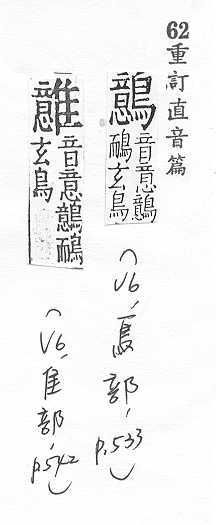 62 重訂直音篇
鷾
音意鷾
鴯玄鳥
(V6, 鳥部, p.533)
音意鷾鴯
玄鳥
(V6, 隹部, p.542)